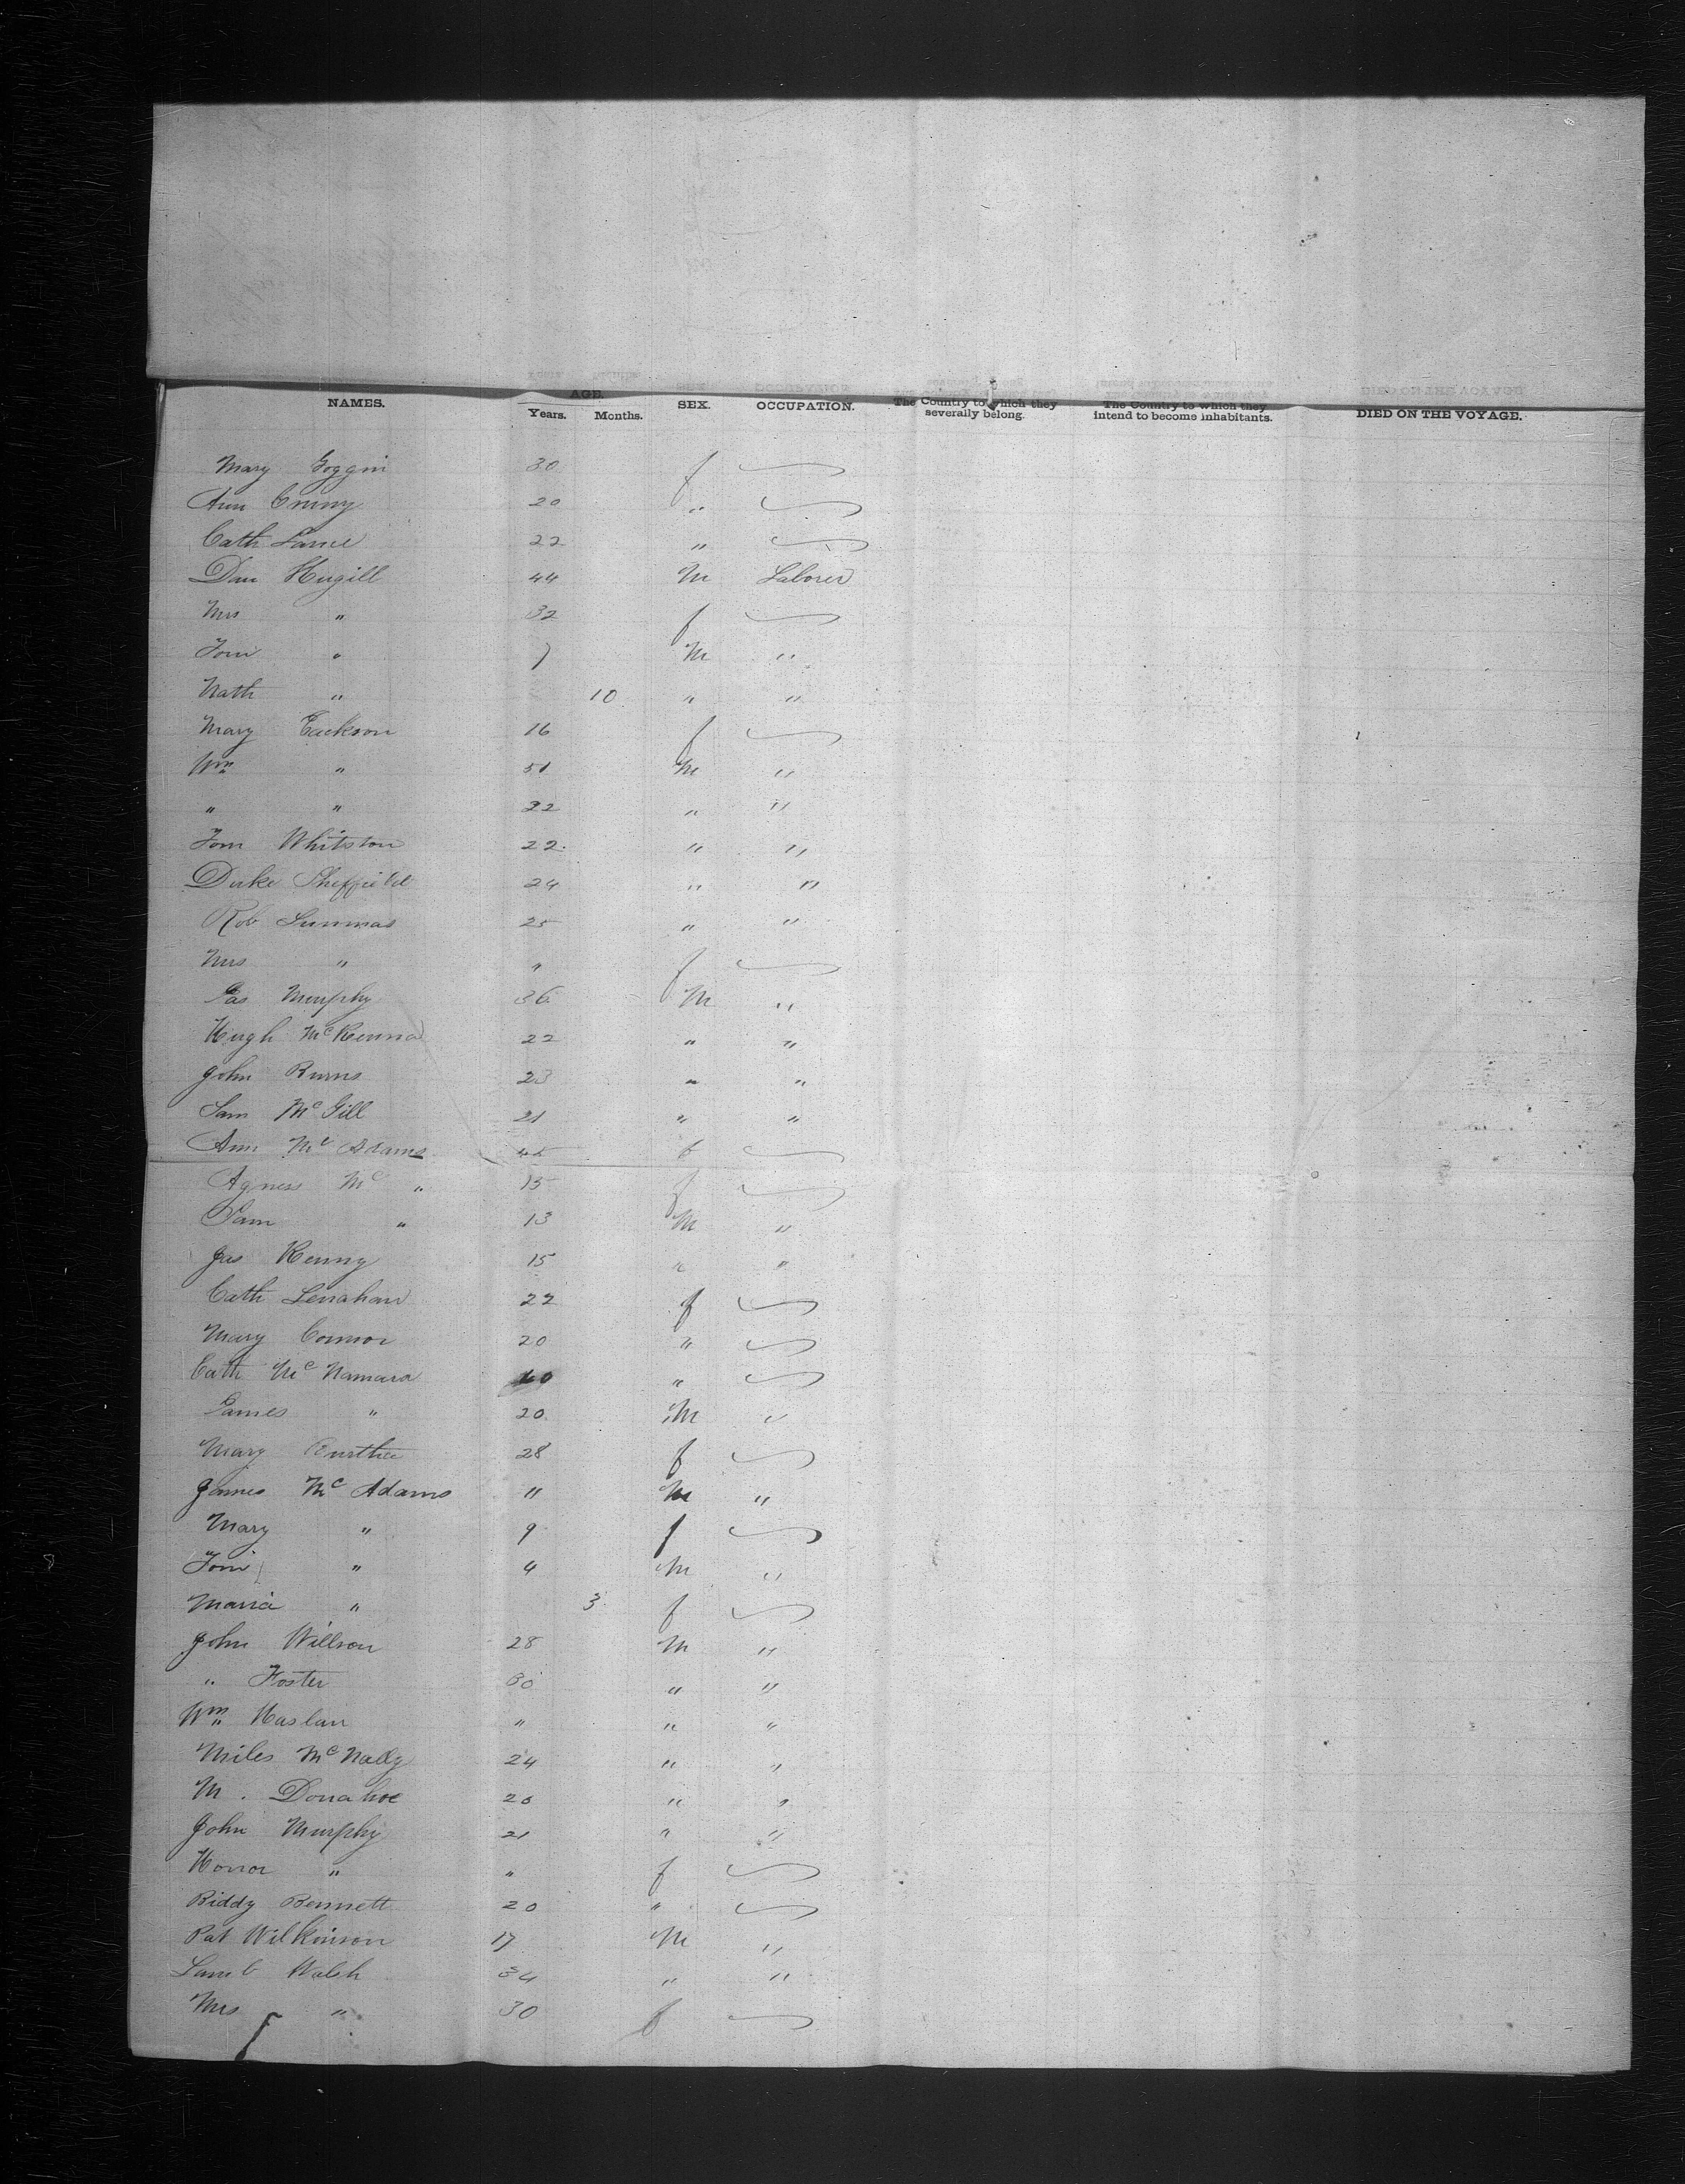 NAMES. AGE. Years. Months. SEX. OCCUPATION. The Country to which they severally belong. The Country to which they intend to become inhabitants. DIED ON THE VOYAGE.
Mary Goggin 30 f
Ann 20 "
Cath 22 "
Dan Hugill 44 M Laborer
Mrs " 32 f
Tom " 7 M "
Nath " 10 " "
Mary Jackson 16 f
Wm " 51 M "
" " 22 " "
Tom Whitston 22 " "
Duke Sheffield 24 " "
Rob 25 " "
Mrs " " f
Jas Murphy 36 M "
Hugh McKenna 22 " "
John Burns 23 " "
Sam McGill 21 " "
Ann Mc Adams 45 f
Agness Mc " 15 f
Sam " 13 M "
Jas Kenny 15 " "
Cath Lenahan 22 f
Mary Connor 20 "
Cath McNamara "
James " 20 M "
Mary 28 f
James Mc Adams " M "
Mary " 9 f
Tom " 4 M "
Maria " 3 f
John Willson 28 M "
" Foster 30 " "
Wm Haslan " " "
Miles McNally 24 " "
M. Donahoe 20 " "
John Murphy 21 " "
Honor " " f
Biddy Bennett 20 "
Pat Wilkinson 17 M "
Walsh 34 " "
Mrs " 30 f